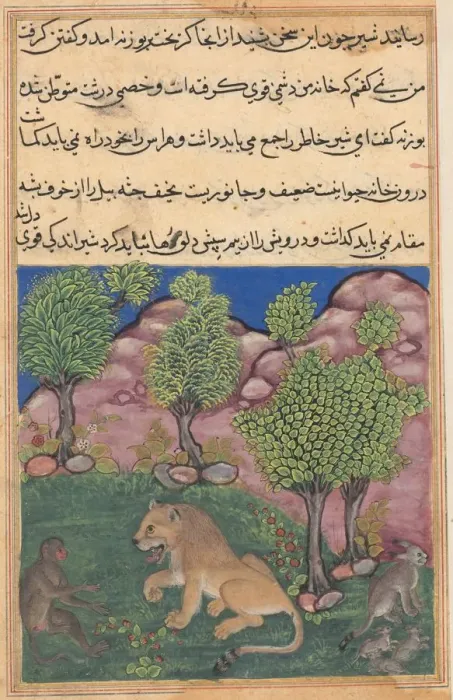 رسانید شیر چون این سخن شنید از انجا کریخت بر بوزنه امد و کفتن کرفت
من نمی کفتم که خانه من دشمنی قوی کرفته است و خصمی درشت متوطن شده
بوزنه کفت ای شیر خاطر جمع می باید داشت و هراس را بخود راه نمی باید کماشت
درون خانه حیوانیست ضعیف و جانوریست نحیف جثه پیل را از خوف پشه
مقام نمی باید کذاشت و درویش را از بیم سپش دلق رها نباید کرد شیر اندکی قوی دل شد